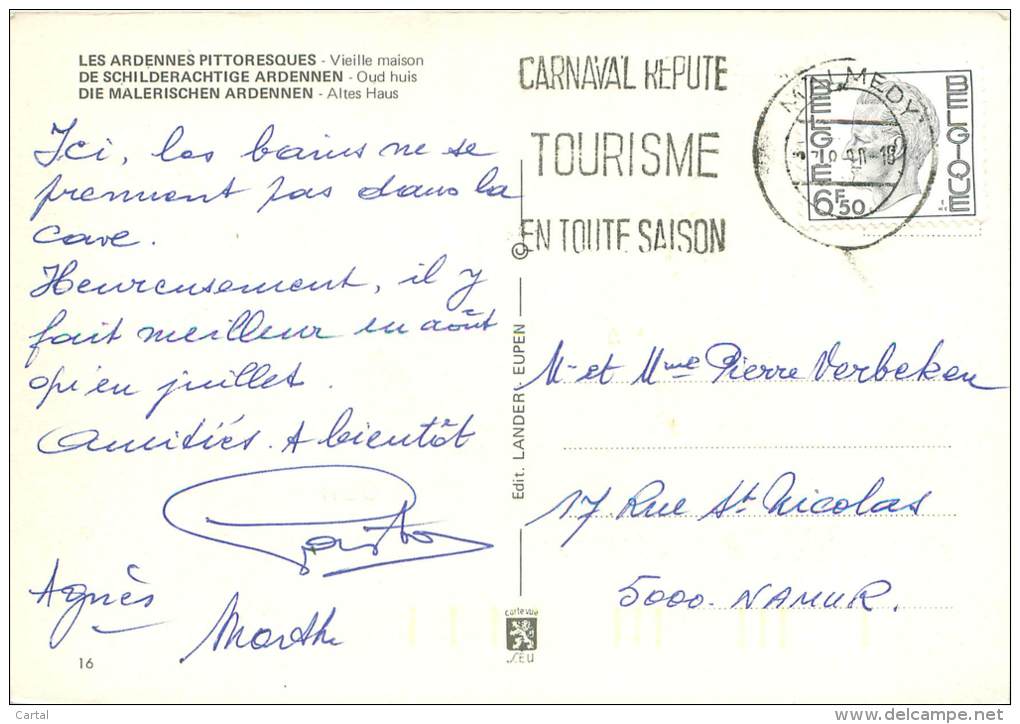 LES ARDENNES PITTORESQUES - Vieille maison
DE SCHILDERACHTIGE ARDENNEN - Oud huis
DIE MALERISCHEN ARDENNEN - Altes Haus
Ici, les bains ne se
prennent pas dans la
cave.
Heureusement, il y
fait meilleur en août
qu'en juillet.
Amitiés. A bientôt
Agnès
Marthe
16
CARNAVAL REPUTE
TOURISME
EN TOUTE SAISON
MALMEDY
BELGIE
BELGIQUE
6F50
©
Edit. LANDER, EUPEN
carte vue
M. et Mme Pierre Verbeken
17 Rue St. Nicolas
5000. NAMUR.
Cartal
delcampe.net